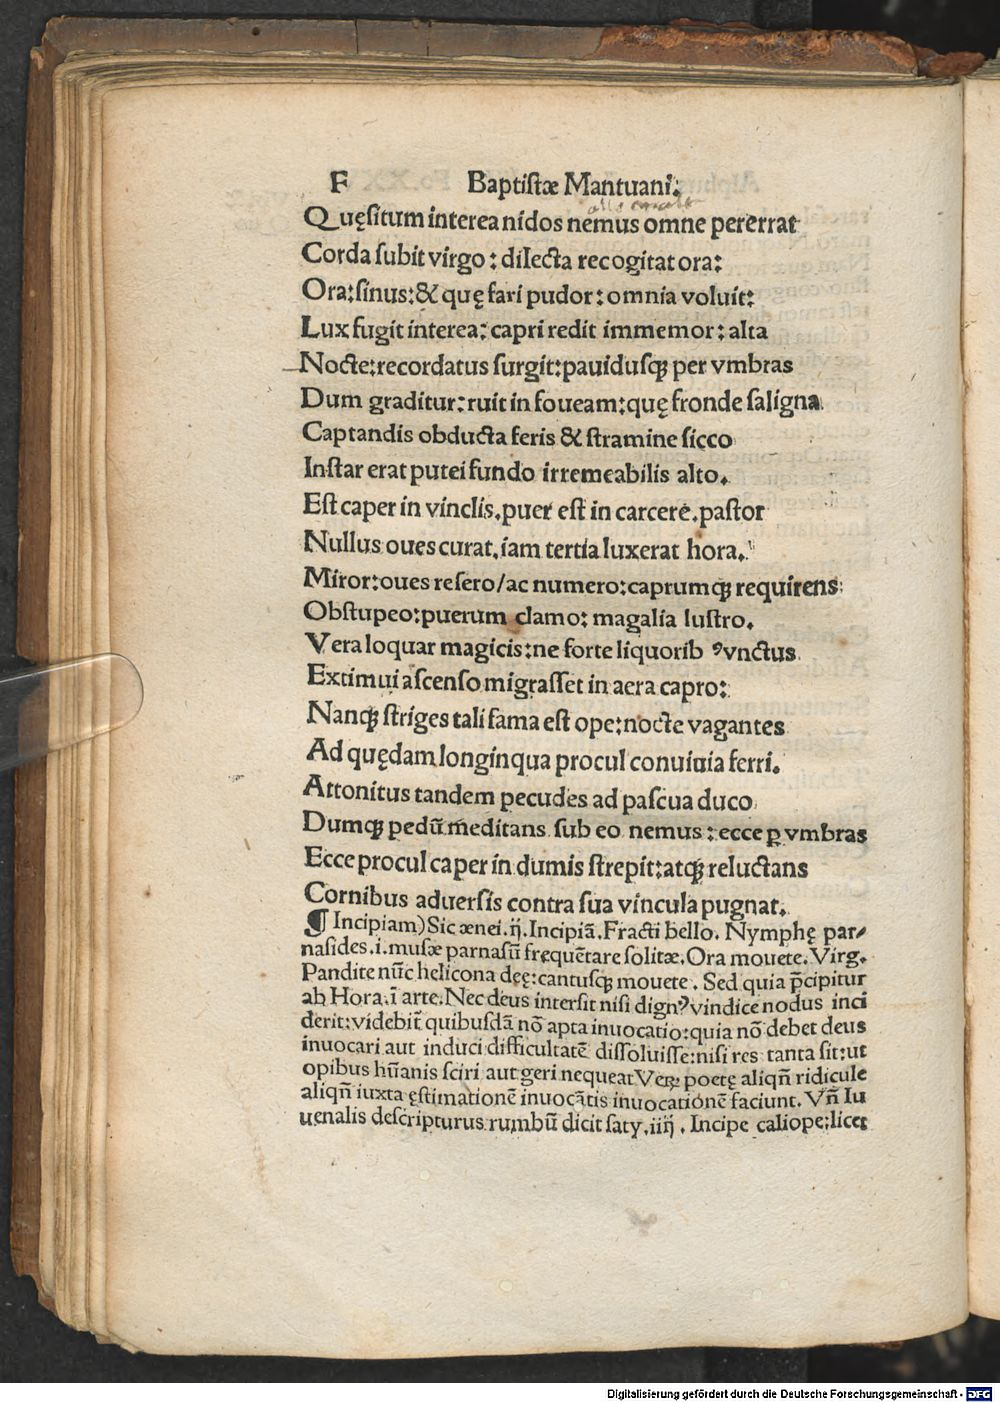 F Baptistæ Mantuani.
Quęsitum interea nidos nemus omne pererrat
Corda subit virgo: dilecta recogitat ora:
Ora: sinus: & quę fari pudor: omnia voluit:
Lux fugit interea: capri redit immemor: alta
Nocte: recordatus surgit: pauidusqꝫ per vmbras
Dum graditur: ruit in foueam: quę fronde saligna
Captandis obducta feris & stramine sicco
Instar erat putei fundo irremeabilis alto.
Est caper in vinclis. puer est in carcere. pastor
Nullus oues curat. iam tertia luxerat hora.
Miror: oues resero/ac numero: caprumqꝫ requirens:
Obstupeo: puerum clamo: magalia lustro.
Vera loquar magicis: ne forte liquorib ꝰvnctus
Extimui ascenso migrasset in aera capro:
Nanqꝫ striges tali fama est ope: nocte vagantes
Ad quędam longinqua procul conuiuia ferri.
Attonitus tandem pecudes ad pascua duco
Dumqꝫ pedū meditans sub eo nemus: ecce ꝑ vmbras
Ecce procul caper in dumis strepit: atqꝫ reluctans
Cornibus aduersis contra sua vincula pugnat.
¶ Incipiam) Sic ænei. ij. Incipiā. Fracti bello. Nymphę par⸗
nasides. i. musæ parnasū frequētare solitæ. Ora mouete. Virg.
Pandite nūc helicona deę: cantusqꝫ mouete. Sed quia p̄cipitur
ab Hora. ī arte. Nec deus intersit nisi dignꝰ vindice nodus inci
derit: videbit᷑ quibusdā nō apta inuocatio: quia nō debet deus
inuocari aut induci difficultatē dissoluisse: nisi res tanta sit: ut
opibus hūanis sciri aut geri nequeat Veꝝ poetę aliqn̄ ridicule
aliqn̄ iuxta ęstimationē inuocātis inuocationē faciunt. Vn̄ Iu
uenalis descripturus rumbū dicit saty. iiij. Incipe caliope: licet
Digitalisierung gefördert durch die Deutsche Forschungsgemeinschaft - DFG